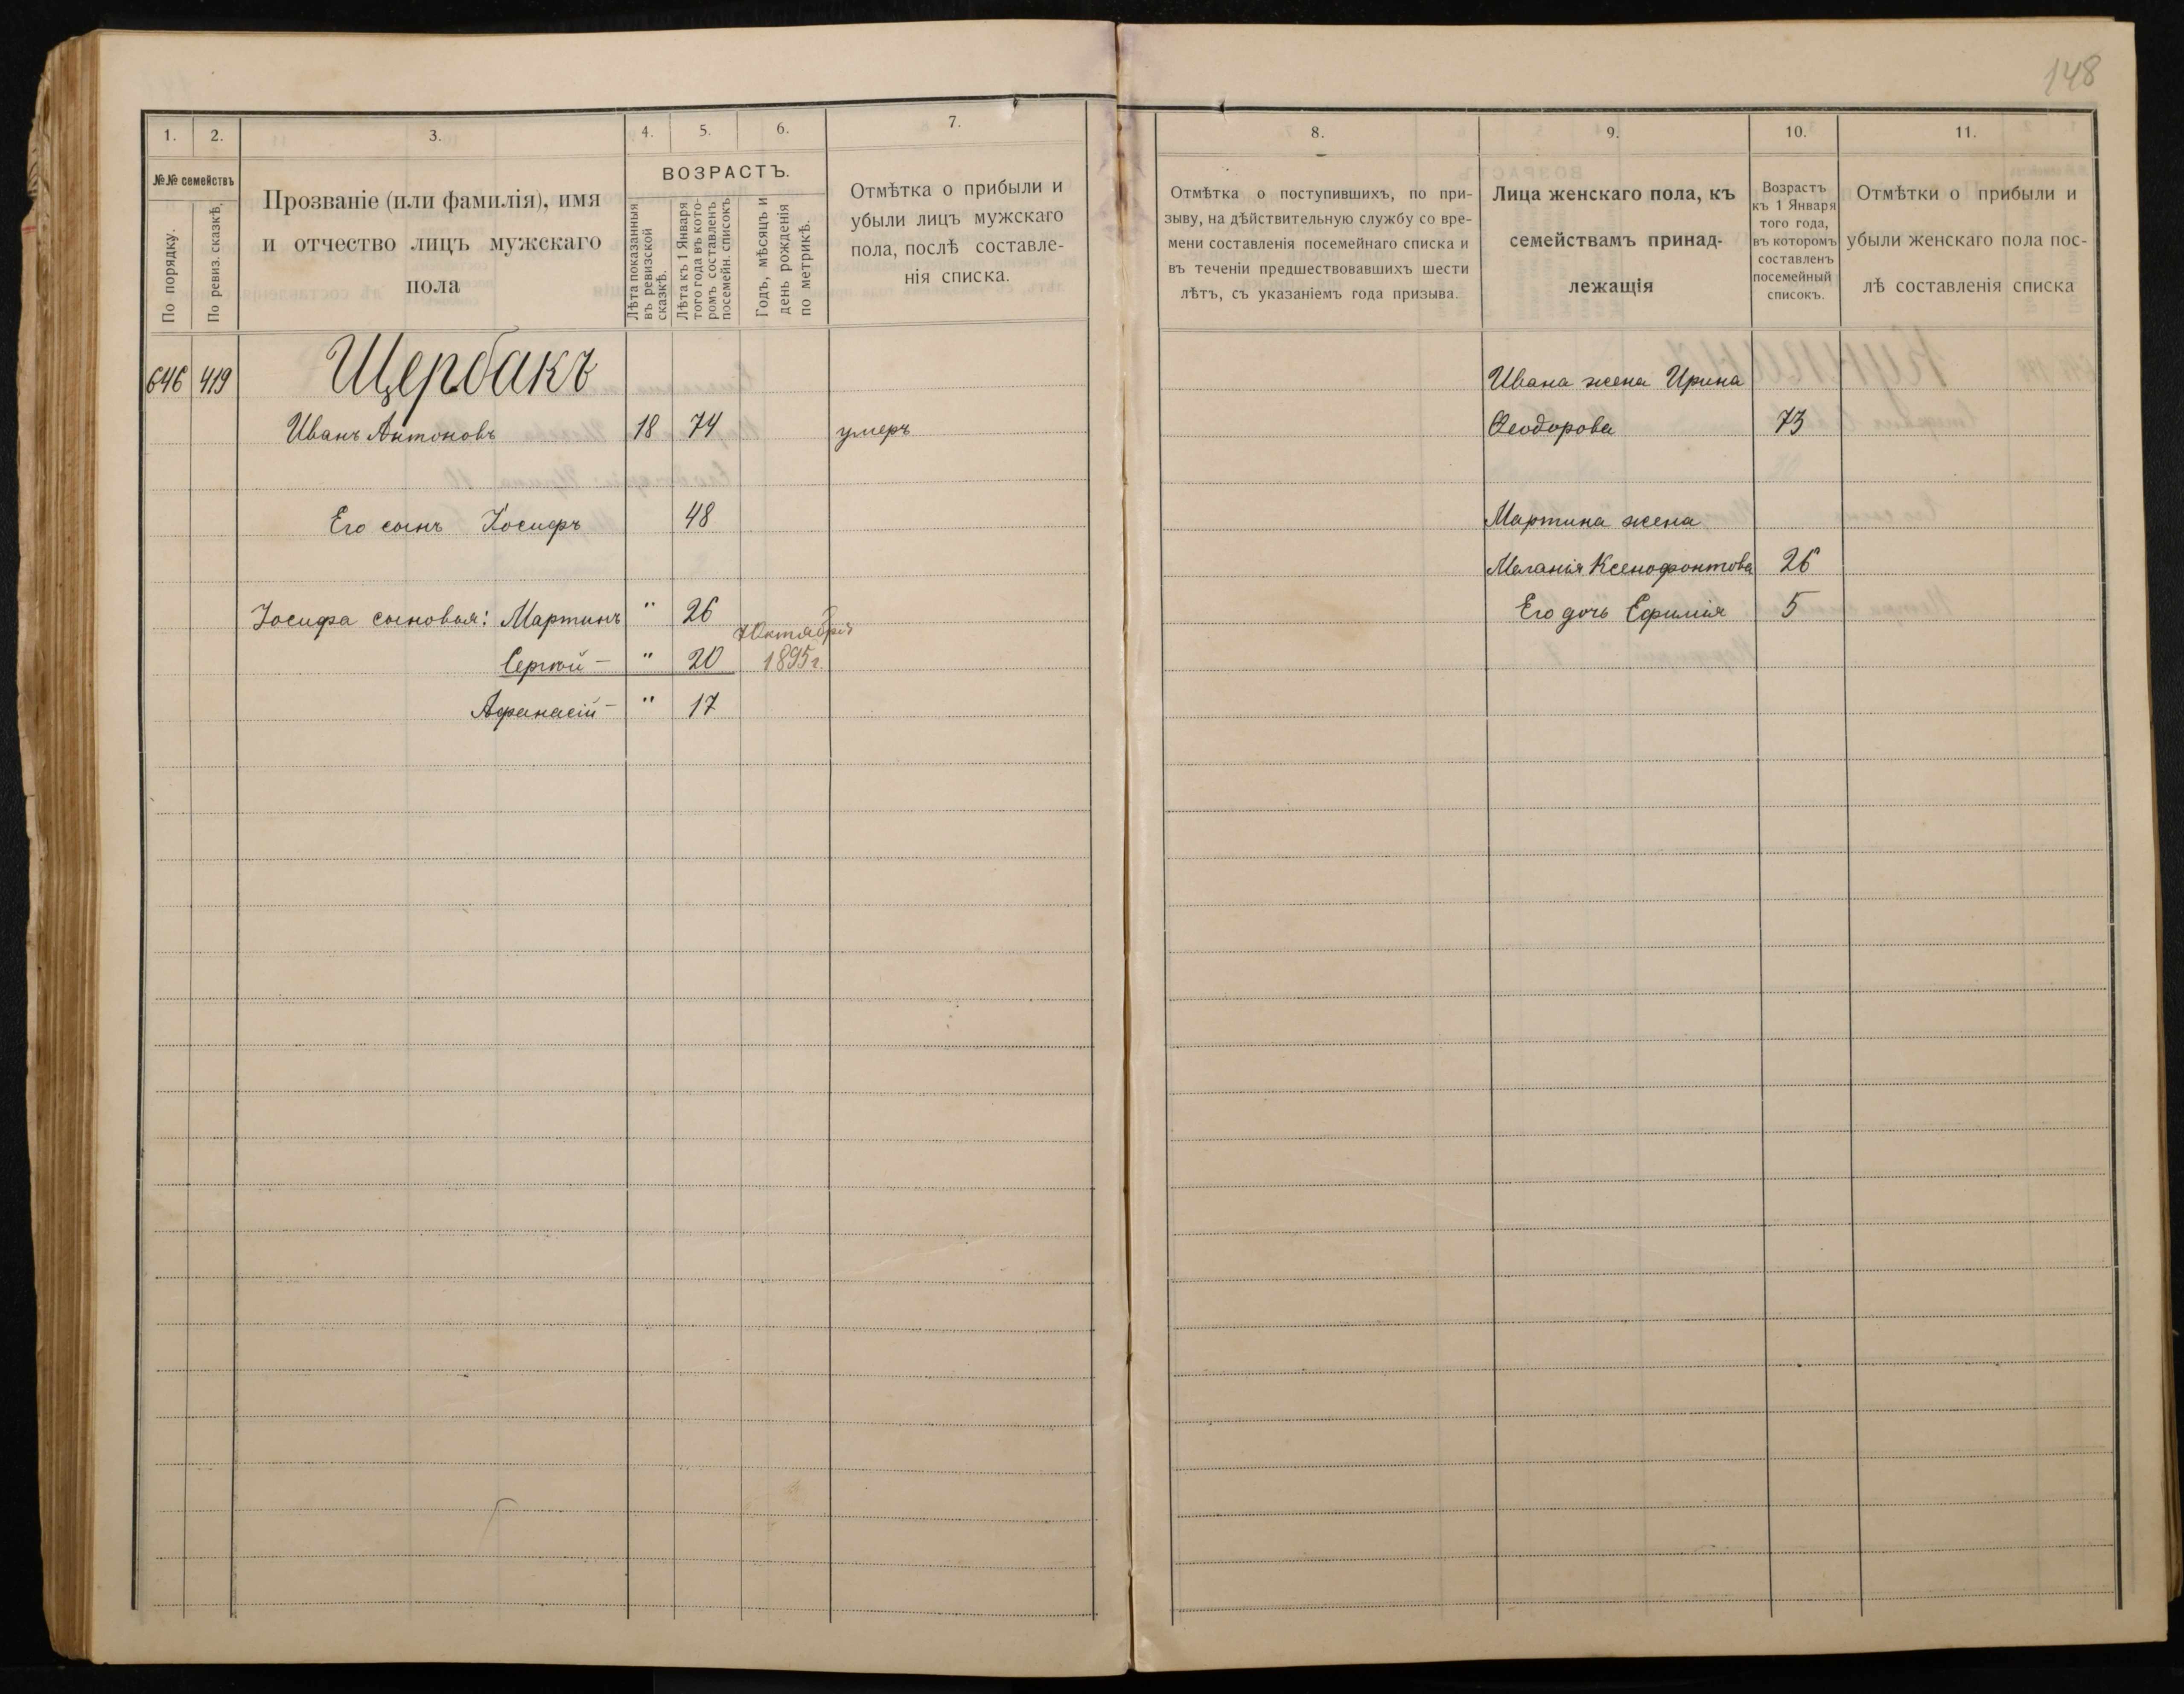 148
1.
2.
3.
4.
5.
6.
7.
№№ семействъ
По порядку.
По ревиз. сказкѣ.
Прозваніе (или фамилія), имя
и отчество лицъ мужскаго
пола
ВОЗРАСТЪ.
Лѣта показанныя
въ ревизской
сказкѣ.
Лѣта къ 1 Января
того года въ кото-
ромъ составленъ
посемейн. списокъ
Годъ, мѣсяцъ и
день рожденія
по метрикѣ.
Отмѣтка о прибыли и
убыли лицъ мужскаго
пола, послѣ составле-
нія списка.
646 419 Щербакъ
Иванъ Антоновъ 18 74 умеръ
Его сынъ Іосифъ 48
Іосифа сыновья: Мартинъ " 26
7 Октября
Сергѣй – " 20 1895 г.
Афанасій – " 17
8.
9.
10.
11.
Отмѣтка о поступившихъ, по при-
зыву, на дѣйствительную службу со вре-
мени составленія посемейнаго списка и
въ теченіи предшествовавшихъ шести
лѣтъ, съ указаніемъ года призыва.
Лица женскаго пола, къ
семействамъ принад-
лежащія
Возрастъ
къ 1 Января
того года,
въ которомъ
составленъ
посемейный
списокъ.
Отмѣтки о прибыли и
убыли женскаго пола пос-
лѣ составленія списка
Ивана жена Ирина
Ѳеодорова 73
Мартина жена
Меланія Ксенофонтова 26
Его дочь Ефимія 5